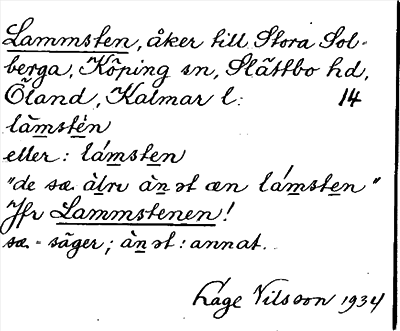 Lammsten, åker till Stora Sol-
berga, Köping sn, Slättbo hd,
Öland, Kalmar l: 14
là̄mstèn
eller: lámsten
"de sæ. àlrı àn ət æn lámsten"
Jfr Lammstenen!
sæ. = säger; àn ət : annat.
Åage Nilsson 1934